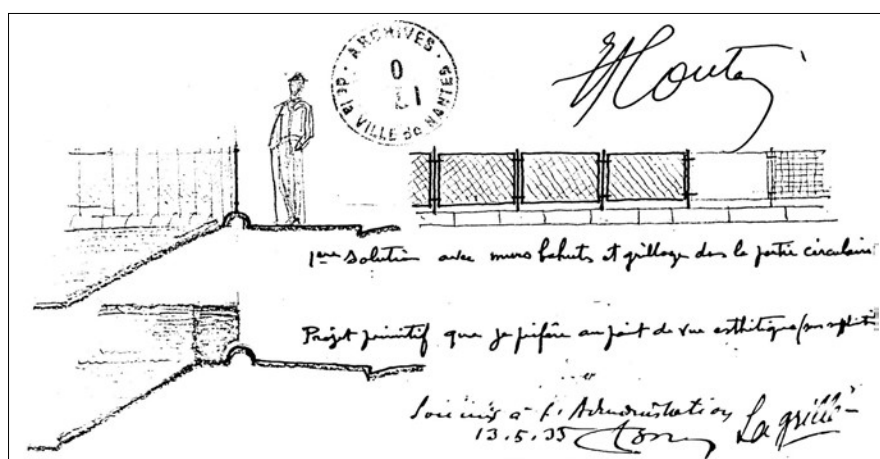 ARCHIVES
de la VILLE de NANTES
1ère solution avec murs bahuts et grillage dans la partie circulaire
Projet primitif que je préfère au point de vue esthétique
Soumis à l'Administration
13.5.35
La grille